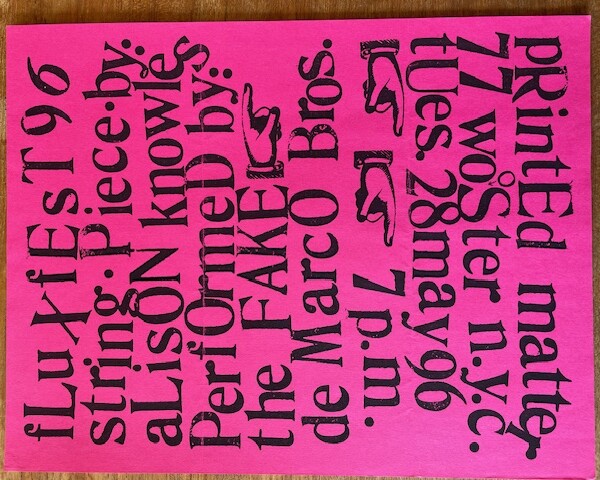 fLuXfEsT 96
string·Piece·by:
aLisON knowles
PerfOrmeD by:
the FAKE
de MarcO Bros.
pRintEd matter
77 woSter n.y.c.
tUes. 28 may 96
7 p.m.